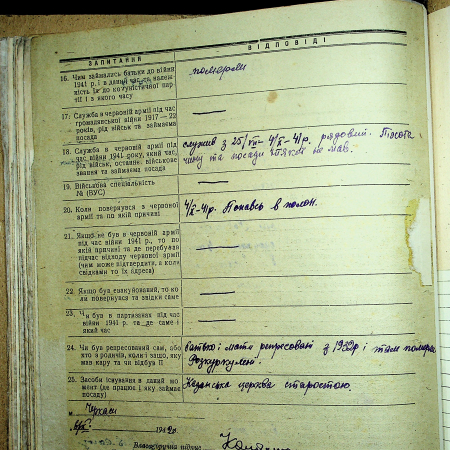 ЗАПИТАННЯ
ВІДПОВІДІ
16. Чим займались батьки до війни
1941 р. і в даний час та належ-
ність їх до комуністичної пар-
тії і з якого часу
померли
17. Служба в червоній армії під час
громадянської війни 1917 — 22
років, рід військ та займаєма
посада
—
18. Служба в червоній армії під
час війни 1941 року, який час,
рід військ, останнє військове
звання та займаєма посада
служив з 25/VII - 4/X - 41р. рядовий.
чину та посади ніякої не мав.
19. Військова спеціальність
№ (ВУС)
—
20. Коли повернувся з червоної
армії та по якій причині
4/X-41р. Попавсь в полон.
21. Якщо не був в червоній армії
під час війни 1941 р., то по
якій причині та де перебував
підчас відходу червоної армії
(чим може підтвердити, а коли
свідками то їх адреса)
—
22. Якщо був евакуйований, то ко-
ли повернувся та звідки саме
—
23. Чи був в партизанах під час
війни 1941 р. та де саме і
який час
—
24. Чи був репресований сам, або
хто з родичів, коли і защо, яку
мав кару та чи відбув її
батько і мати репресовані з 1932р і там померли
Розкуркулені.
25. Засоби існування в даний мо-
мент (де працює і яку займає
посаду)
Казанська церква старостою.
м.
194 р.
Власноручна підпис